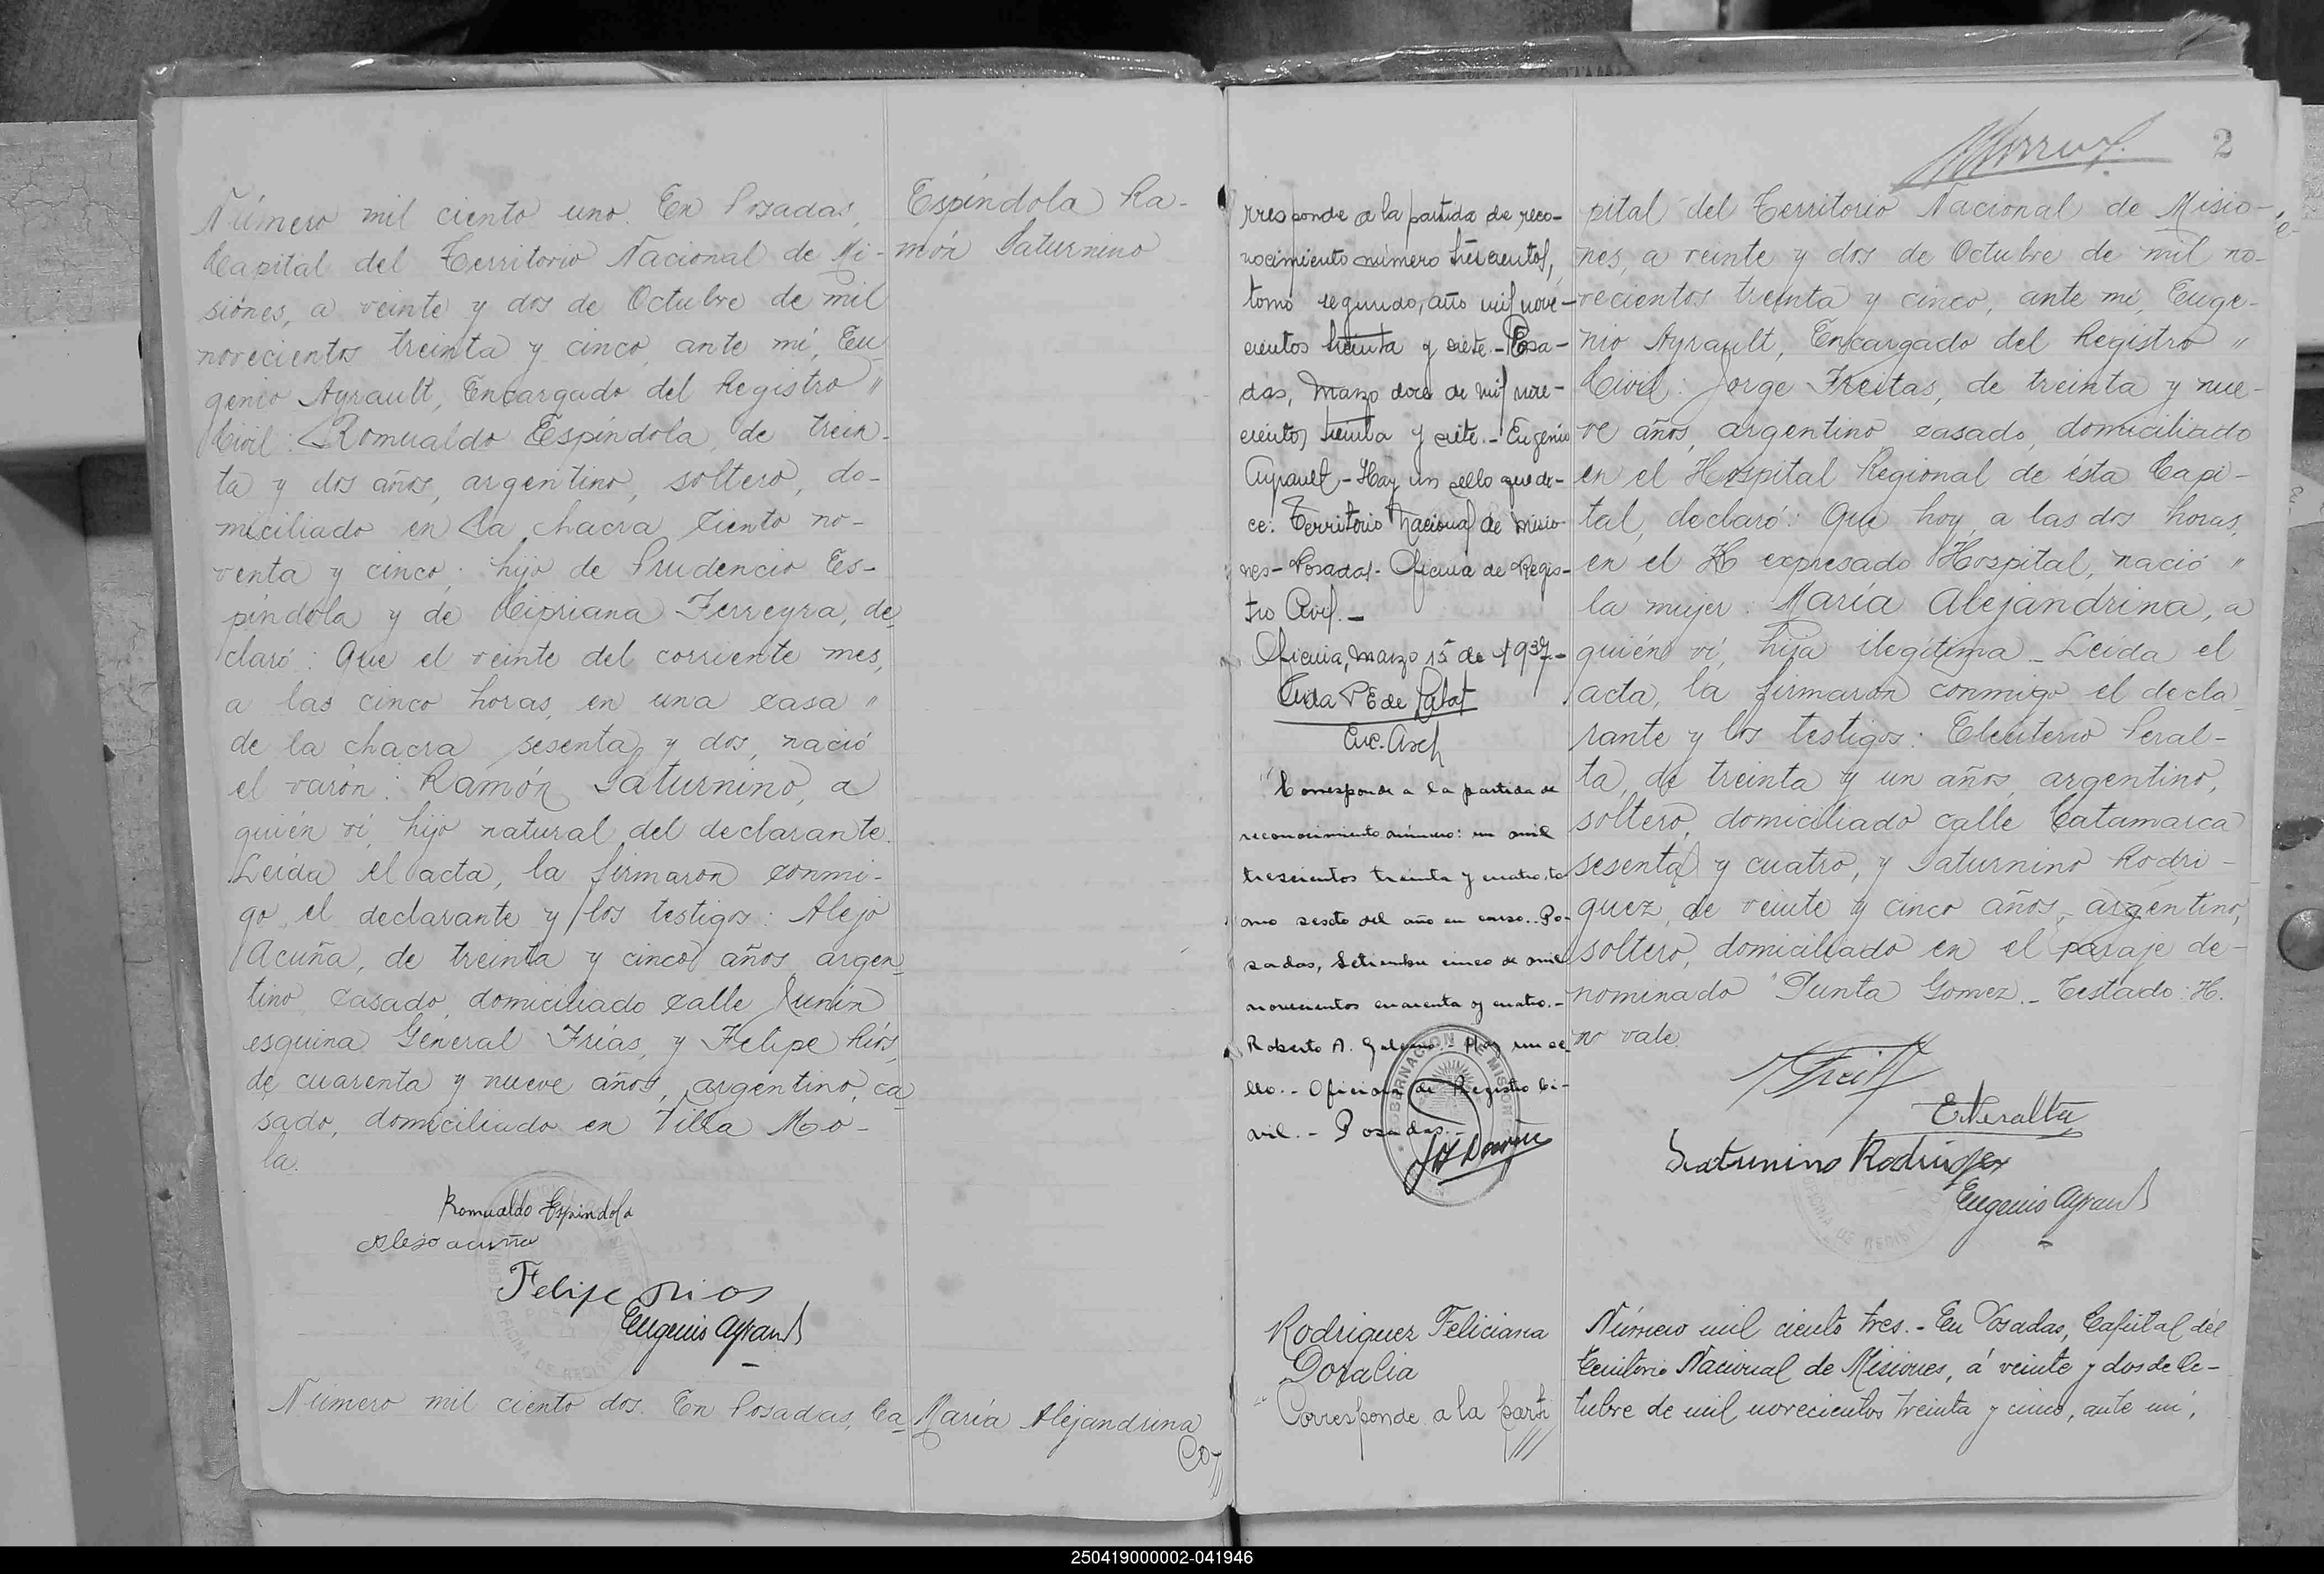 Número mil ciento uno. En Posadas,
Capital del Territorio Nacional de Mi-
siones, a veinte y dos de Octubre de mil
novecientos treinta y cinco, ante mí, Eu
genio Ayrault, Encargado del Registro "
Civil: Romualdo Espíndola, de trein-
ta y dos años, argentino, soltero, do-
miciliado en la chacra ciento no-
venta y cinco; hijo de Prudencio Es-
píndola y de Cipriana Ferreyra, de
claró: Que el veinte del corriente mes,
a las cinco horas, en una casa "
de la chacra sesenta y dos, nació
el varón: Ramón Saturnino, a
quién ví, hijo natural del declarante.
Leída el acta, la firmaron conmi-
go, el declarante y los testigos: Alejo
Acuña, de treinta y cinco años, argen
tino, casado, domiciliado calle Junín
esquina General Frías, y Felipe Ríos,
de cuarenta y nueve años, argentino, ca
sado, domiciliado en Villa Mo-
la.
Romualdo Espindola
Alejo acuña
Felipe rios
Eugenio Ayrault
Número mil ciento dos. En Posadas, Ca
Espíndola Ra-
món Saturnino
María Alejandrina
Co-
rresponde a la partida de reco-
nocimiento número trescientos,
tomo segundo, año mil nove-
cientos treinta y siete.- Posa-
das, Marzo doce de mil nove-
cientos treinta y siete.- Eugenio
Ayrault - Hay un sello que di-
ce: Territorio Nacional de Misio-
nes - Posadas - Oficina de Regis-
tro Civil.-
Oficina, Marzo 15 de 1937.-
"Corresponde a la partida de
reconocimiento número: un mil
trescientos treinta y cuatro, to
mo sesto del año en curso.. Po-
sadas, Setiembre cinco de mil
novecientos cuarenta y cuatro.-
Roberto A. Galeano.- Hay un se-
llo.- Oficina de Registro Ci-
vil.- Posadas.-
Rodriguez Feliciana
Doralia
"Corresponde a la parti
2
pital del Territorio Nacional de Misio-
nes, a veinte y dos de Octubre de mil no-
vecientos treinta y cinco, ante mí, Euge-
nio Ayrault, Encargado del Registro "
Civil: Jorge Freitas, de treinta y nue-
ve años, argentino, casado, domiciliado
en el Hospital Regional de ésta Capi-
tal, declaró: Que hoy, a las dos horas,
en el H expresado Hospital, nació "
la mujer: María Alejandrina, a
quién ví, hija ilegítima.- Leída el
acta, la firmaron conmigo el decla
rante y los testigos: Eleuterio Peral-
ta, de treinta y un años, argentino,
soltero, domiciliado calle Catamarca
sesenta y cuatro, y Saturnino Rodri-
guez, de veinte y cinco años, argentino,
soltero, domiciliado en el paraje de-
nominado "Punta Gomez.- Testado: H.
no vale.
E. Peralta
Saturnino Rodriguez
Eugenio Ayrault
Número mil ciento tres.- En Posadas, Capital del
Territorio Nacional de Misiones, á veinte y dos de Oc-
tubre de mil novecientos treinta y cinco, ante mí,
250419000002-041946